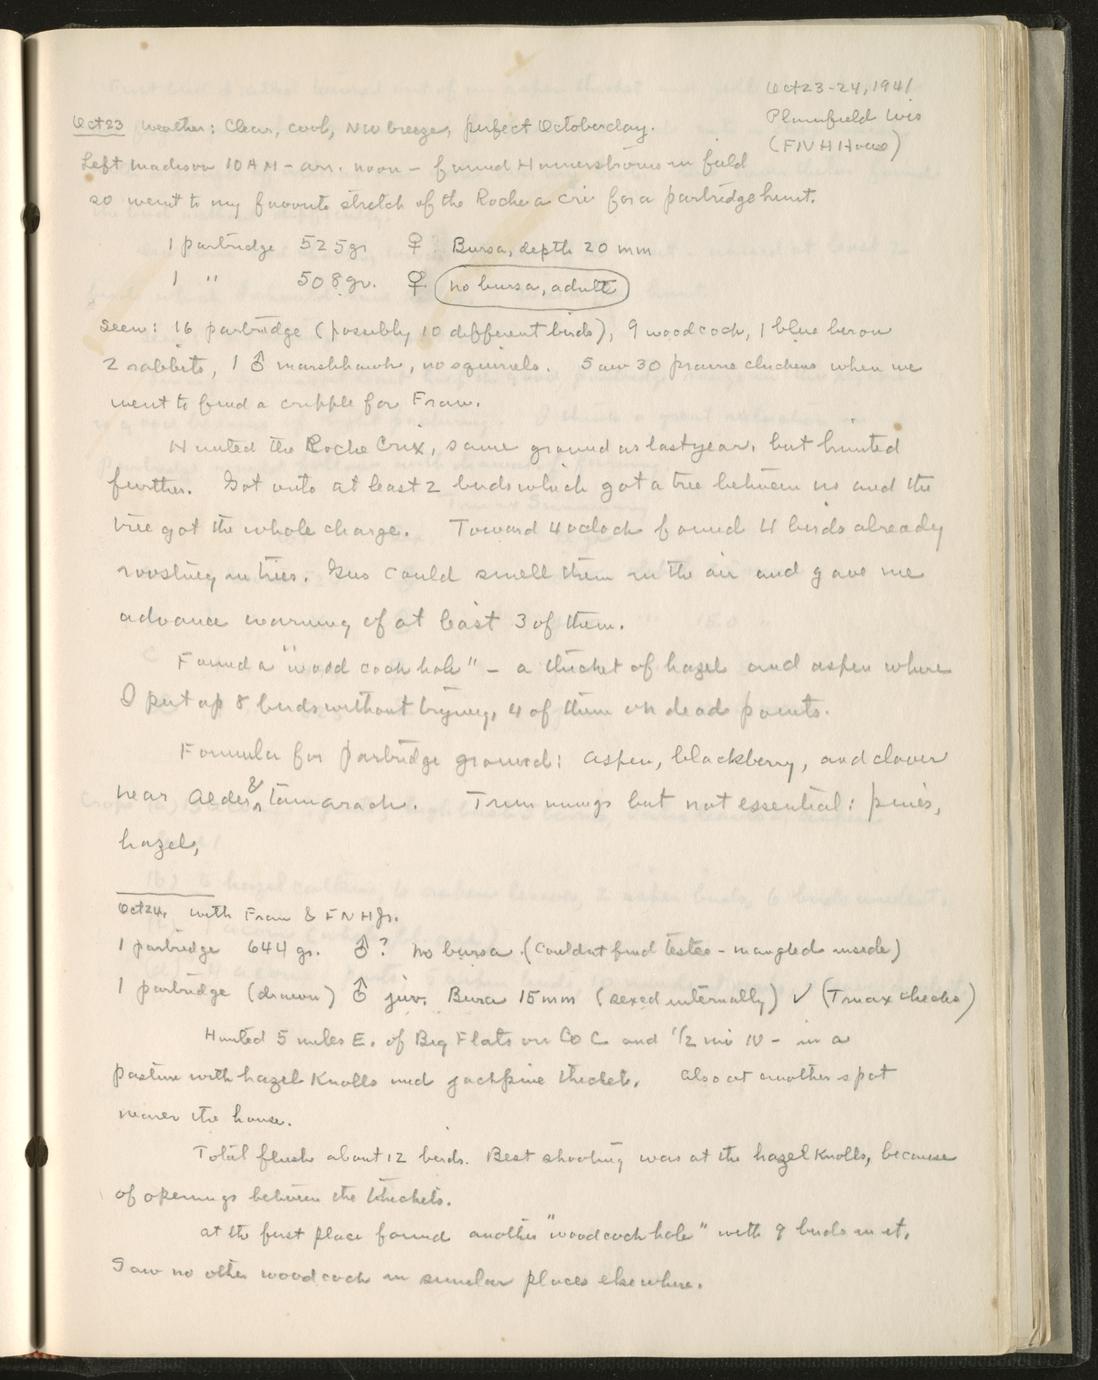 Oct 23-24, 1941
Plainfield Wis
(FNH House)
Oct 23 Weather: Clear, cool, NW breeze, perfect October day.
Left Madison 10 AM - arr. noon - found Hamerstroms in field
so went to my favorite stretch of the Roche a Cri for a partridge hunt.
1 partridge 525 gr ♀ Bursa, depth 20 mm
1 " 508 gr. ♀ no bursa, adult
Seen: 16 partridge (possibly 10 different birds), 9 woodcock, 1 blue heron
2 rabbits, 1 ♂ marshhawk, no squirrels. Saw 30 prairie chickens when we
went to find a cripple for Fran.
Hunted the Roche Crix, same ground as last year, but hunted
further. Got onto at least 2 birds which got a tree between us and the
tree got the whole charge. Toward 4 oclock found 4 birds already
roosting in trees. Gus could smell them in the air and gave me
advance warning of at least 3 of them.
Found a "woodcock hole" - a thicket of hazel and aspen where
I put up 8 birds without trying, 4 of them on dead points.
Formula for partridge ground: aspen, blackberry, and clover
near alder & tamarack. Trimmings but not essential: pines,
hazel,
Oct 24. with Fran & FNH Jr.
1 partridge 644 gr. ♂? no bursa. (Couldnt find testes - mangled inside)
1 partridge (drawn) ♂ juv. Bursa 15 mm (sexed internally) ✓ (Tmax checks)
Hunted 5 miles E. of Big Flats on Co C and 1/2 mi N - in a
pasture with hazel knolls and jackpine thickets. Also at another spot
nearer the house.
Total flush about 12 birds. Best shooting was at the hazel knolls, because
of openings between the thickets.
At the first place found another "woodcock hole" with 9 birds in it.
Saw no other woodcock in similar places elsewhere.